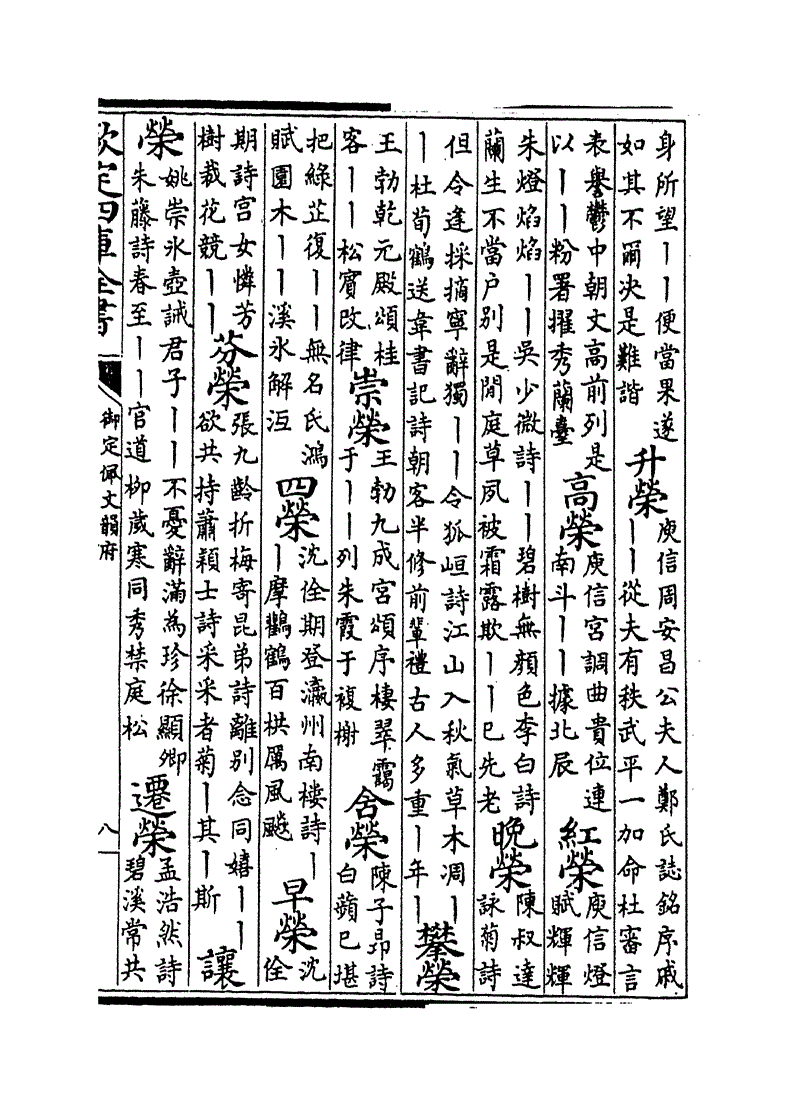 身所望丨丨便當果遂
如其不爾决是難諧
升榮
庾信周安昌公夫人鄭氏誌銘序戚
丨丨從夫有秩武平一加命杜審言
表譽鬱中朝文高前列是
以丨丨粉署擢秀蘭臺
高榮
庾信宮調曲貴位連
南斗丨丨據北辰
紅榮
庾信燈
賦輝輝
朱燈焰焰丨丨吳少微詩丨丨碧樹無顏色李白詩
蘭生不當户别是閒庭草夙被霜露欺丨丨已先老
晚榮
陳叔達
詠菊詩
但令逢採摘寧辭獨丨丨令狐峘詩江山入秋氣草木凋丨
丨杜荀鶴送韋書記詩朝客半修前輩禮古人多重丨年丨
攀榮
王勃乾元殿頌桂
客丨丨松賓改律
崇榮
王勃九成宮頌序棲翠靄
于丨丨列朱霞于複榭
含榮
陳子昂詩
白蘋已堪
把綠芷復丨丨無名氏鴻
賦園木丨丨溪氷解沍
四榮
沈佺期登瀛州南樓詩丨
丨摩鸛鶴百栱厲風飈
早榮
沈
佺
期詩宮女憐芳
樹栽花競丨丨
芬榮
張九齡折梅寄昆弟詩離别念同嬉丨丨
欲共持蕭穎士詩采采者菊丨其丨斯
讓
榮
姚崇氷壺誡君子丨丨不憂辭滿為珍徐顯卿
朱藤詩春至丨丨官道柳歲寒同秀禁庭松
遷榮
孟浩然詩
碧溪常共
欽定四庫全書
御定佩文韻府
八